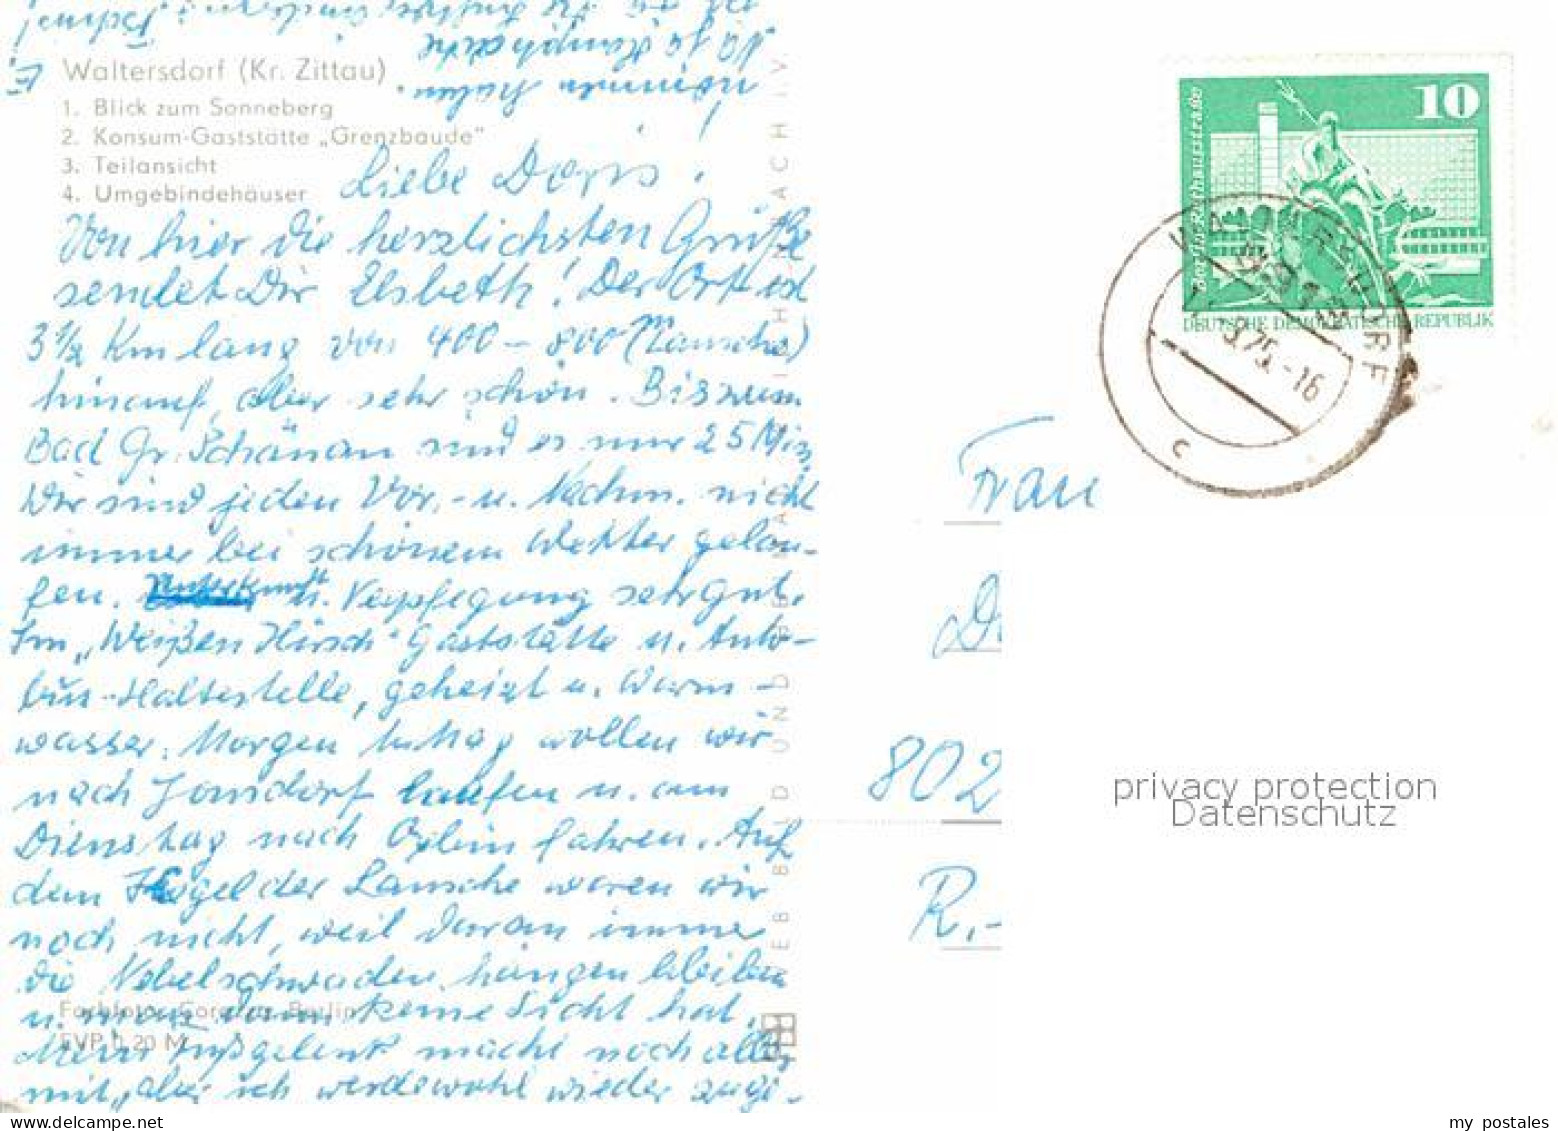 Waltersdorf (Kr. Zittau)
1. Blick zum Sonneberg
2. Konsum-Gaststätte „Grenzbaude"
3. Teilansicht
4. Umgebindehäuser
Liebe Doris!
Von hier die herzlichsten Grüße
sendet Dir Elsbeth! Der Ort ist
3½ Km lang von 400 – 800 (Lausche)
hinauf, aber sehr schön. Bis zum
Bad Gr. Schönau sind es nur 25 Min.
Wir sind jeden Vor.- u. Nachm. nicht
immer bei schönem Wetter gelau-
fen. Unterkunft u. Verpflegung sehr gut.
Im „Weißen Hirsch" Gaststätte u. Auto-
bus-Haltestelle, geheizt u. Warm-
wasser. Morgen wollen wir
nach Jonsdorf laufen u. am
Dienstag nach Oybin fahren. Auf
dem Kegel der Lausche waren wir
noch nicht, weil daran immer
die Nebelschwaden hängen bleiben
u. man dann keine Sicht hat.
Mein Fußgelenk macht noch alles
mit, aber ich werde wohl wieder zuge-
nommen haben.
Na ja
Fachfotos: Berlin
EVP 0.20 M
BILD UND
10
Berlin·Rathausstraße
DEUTSCHE DEMOKRATISCHE REPUBLIK
WALTERSDORF
.75.-16
c
Frau
D
802
R.-
privacy protection
Datenschutz
my postales